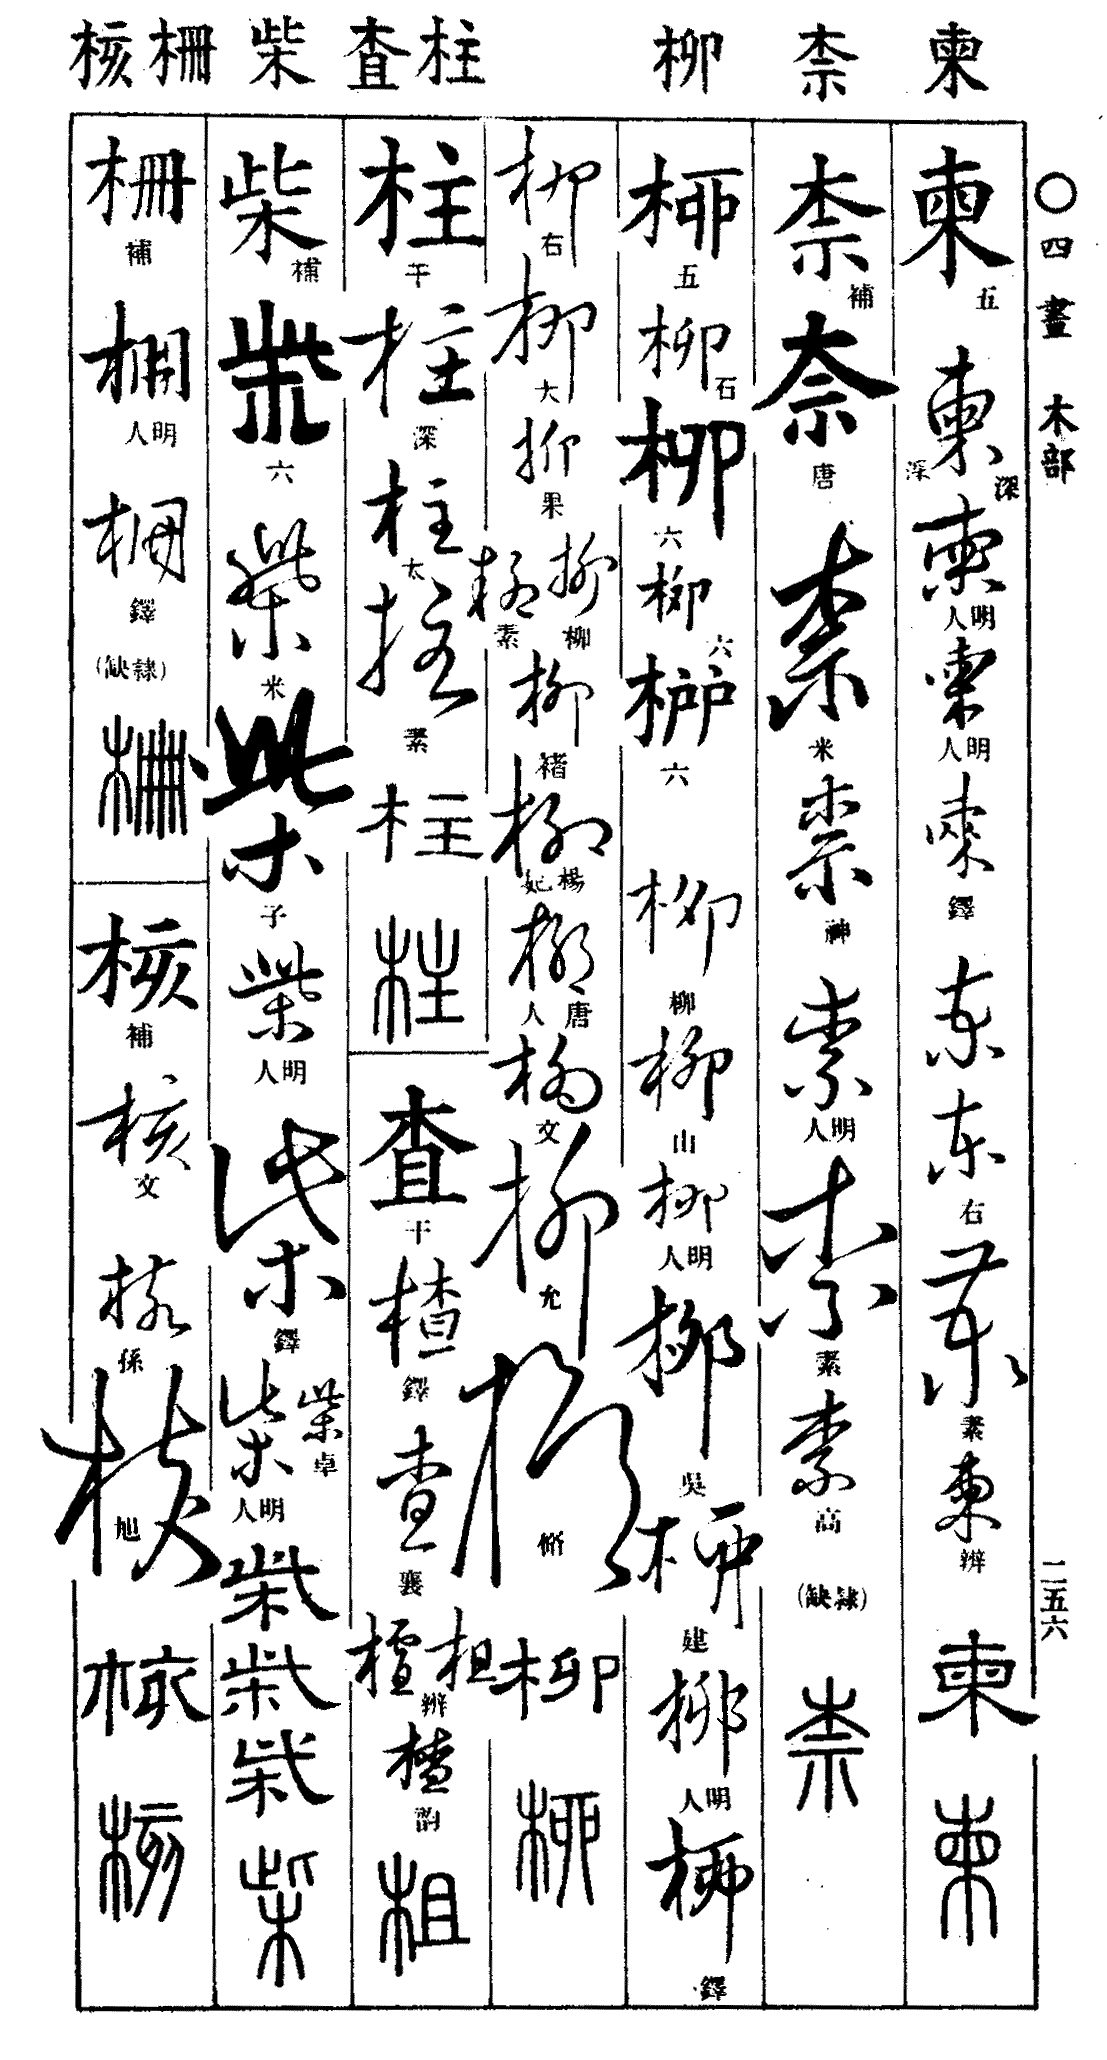 ○四畫 木部
二五六
柬
柰
柳
柱
查
柴
柵
核
柬 五
柬 深 深
柬 明人
柬 明人
柬 鐸
柬
柬 右
柬 素
柬 辨
柬
柬
柰 補
柰 唐
柰 米
柰 神
柰 明人
柰 素
柰 高
(隸缺)
柰
柳 五
柳 石
柳 六
柳 六
柳 六
柳 柳
柳 山
柳 明人
柳 吳
柳 建
柳 明人
柳 鐸
柳 右
柳 大
柳 果
柳 柳
柳 素
柳 褚
柳 楊妃
柳 唐人
柳 文
柳 允
柳 脩
柳
柳
柱 干
柱 深
柱 太
柱 素
柱
柱
查 干
楂 鐸
查 襄
柤 樝 辨
楂 韵
柤
柴 補
柴 六
柴 米
柴 子
柴 明人
柴 鐸
柴 卓
柴 明人
柴
柴
柴
柴
柵 補
柵 明人
柵 鐸
(隸缺)
柵
核 補
核 文
核 孫
核 旭
核
核